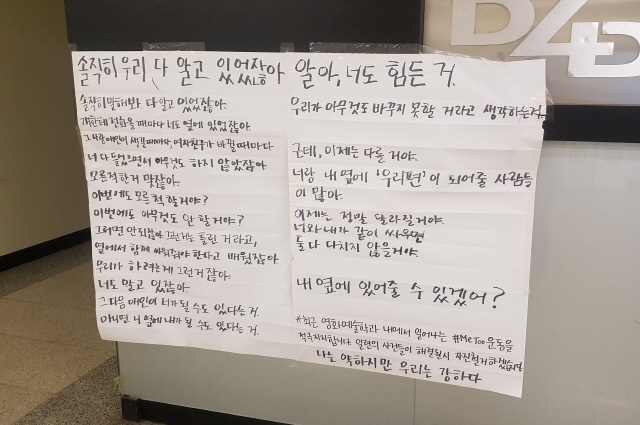 솔직히 우리 다 알고 있었잖아
솔직히 말해봐, 다 알고 있었잖아.
걔한테 전화올 때마다 너도 옆에 있었잖아.
여자친구가 바뀔 때마다
너 다 들었으면서 아무것도 하지 않았잖아
모른척한거 맞잖아.
이번에도 모른 척 할거야?
이번에도 아무것도 안 할거야?
그러면 안되잖아 그런거는 틀린 거라고,
옆에서 함께 싸워줘야 한다고 배웠잖아
우리가 하려는게 그런거잖아.
너도 알고 있잖아.
그 다음 애인이 너가 될 수도 있다는 거.
아니면 니 옆에 내가 될 수도 있다는 거.
알아, 너도 힘든 거.
우리가 아무것도 바꾸지 못할 거라고 생각하는거.
근데, 이제는 다를거야.
너랑 내 옆에 '우리편'이 되어줄 사람들
이 많아.
이제는 정말 달라질거야.
너와 내가 같이 싸우면
둘 다 다치지 않을거야.
내 옆에 있어줄 수 있겠어?
*최근 영화예술학과 내에서 일어나는 #MeToo운동을
적극지지합니다. 일련의 사건들이 해결될시 자진철거하겠습니다
나는 약하지만 우리는 강하다